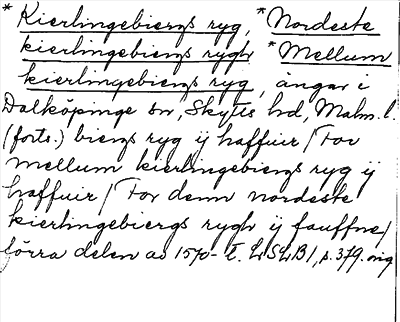 * Kierlingebiergs ryg, * Nordeste
kierlingebiergs rygh * Mellum
kierlingebiergs ryg, ängar i
Dalköpinge sn, Skytts hd, Malm. l.
(forts.) biergs ryg ij haffuir / For
mellum kierlingebiergs ryg ij
haffuir / For denn nordeste
kierlingebiergs rygh ij fauffne /
förra delen av 1570-t. LSLB 1, p. 379. orig